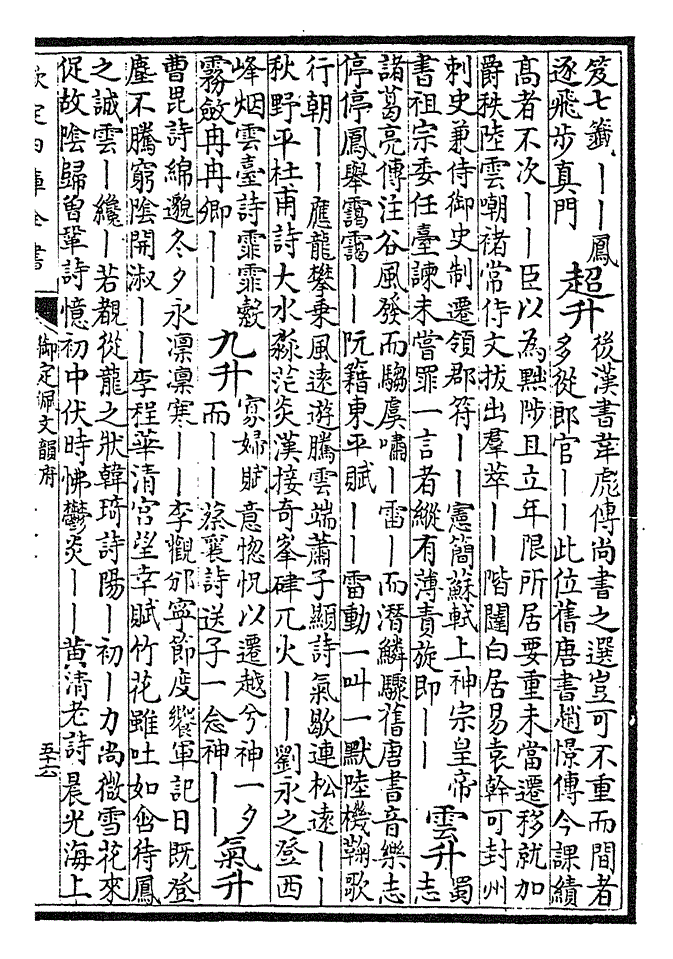 笈七籤｜｜鳳
逐飛步真門
超升
後漢書韋彪傳尚書之選豈可不重而間者
多從郎官｜｜此位舊唐書趙憬傳今課績
髙者不次｜｜臣以為黜陟且立年限所居要重未當遷移就加
爵秩陸雲嘲褚常侍文拔出羣萃｜｜階闥白居易袁幹可封州
刺史兼侍御史制遷領郡符｜｜憲簡蘇軾上神宗皇帝
書祖宗委任臺諫未嘗罪一言者縱有薄責旋即｜｜
雲升
蜀
志
諸葛亮傳注谷風發而騶虞嘯｜雷｜而潛鱗驟舊唐書音樂志
停停鳳舉靄靄｜｜阮籍東平賦｜｜雷動一叫一默陸機鞠歌
行朝｜｜應龍攀乗風逺遊騰雲端蕭子顯詩氣歇連松逺｜｜
秋野平杜甫詩大水淼茫炎漢接奇峯硉兀火｜｜劉永之登西
峰烟雲臺詩霏霏縠
霧斂冉冉卿｜｜
九升
寡婦賦意惚怳以遷越兮神一夕
而｜｜蔡襄詩送子一念神｜｜
氣升
曹毘詩綿邈冬夕永凛凛寒｜｜李觀邠寧節度饗軍記日既登
塵不騰窮陰開淑｜｜李程華清宮望幸賦竹花雖吐如含待鳳
之誠雲｜纔｜若覩從龍之狀韓琦詩陽｜初｜力尚微雪花來
促故陰歸曾鞏詩憶初中伏時怫鬱炎｜｜黄清老詩晨光海上
欽定四庫全書
御定佩文韻府
五十六